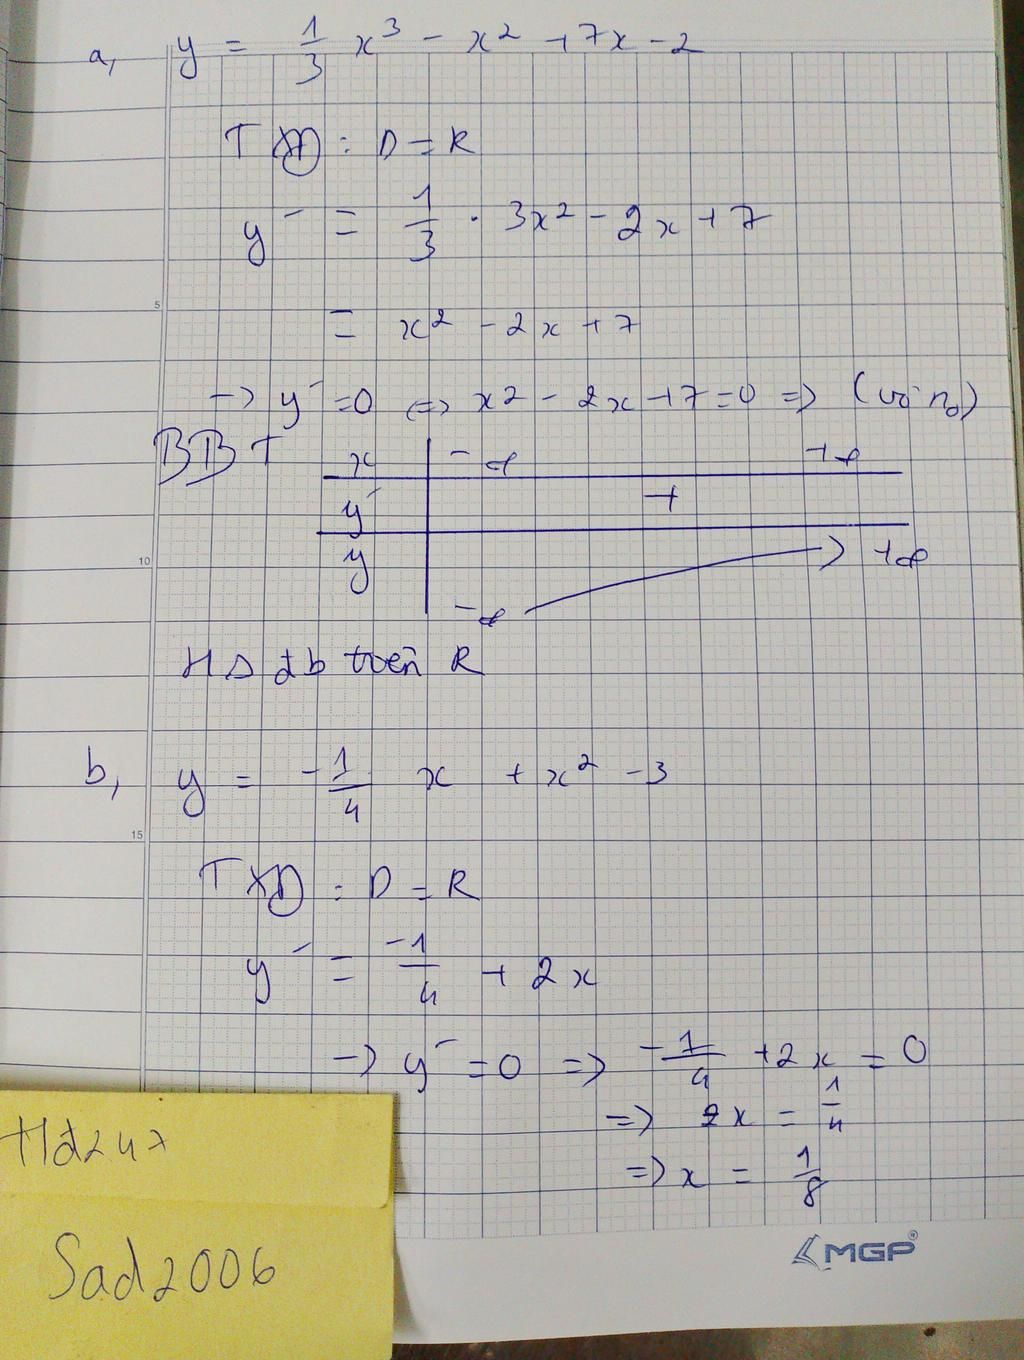 a, y = 1/3 x³ - x² + 7x - 2
TXĐ : D = R
y' = 1/3 . 3x² - 2x + 7
= x² - 2x + 7
-> y' = 0 <=> x² - 2x + 7 = 0 => (vô n₀)
BBT
x -∞ +∞
y' +
y -∞ +∞
HS đb trên R
b, y = -1/4 x + x² - 3
TXĐ : D = R
y' = -1/4 + 2x
-> y' = 0 => -1/4 + 2x = 0
=> 2x = 1/4
=> x = 1/8
5
10
15
Hd247
Sad2006
MGP®